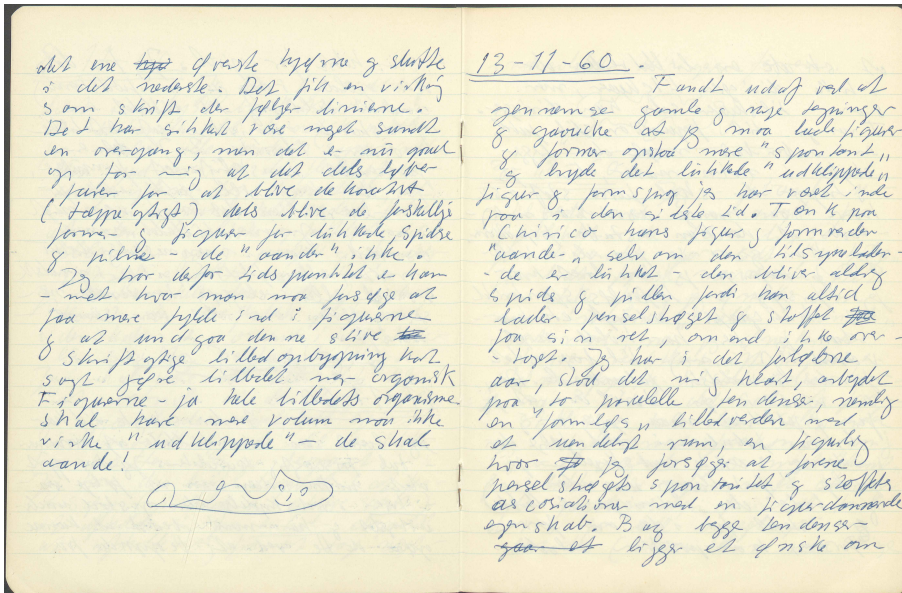 det ene øverste hjørne og slutte
i det nederste. Det fik en virkning
som skrift der følger linierne.
Det har sikkert være meget sundt
en overgang, men det er nu gaaet
op for mig at det dels
farer for at blive dekorativt
(tæppe agtigt) dels blive de forskellige
former og figurer for lukkede, spidse
og pilne - de "aander" ikke.
Jeg tror derfor tidspunktet er kom-
-met hvor man maa forsøge at
faa mere fylde ind i figurerne
og at undgaa denne stive
skriftagtige billedopbygning kort
sagt gøre billedet mer organisk
Figurerne - ja hele billedets organisme
skal have mere volum maa ikke
virke "udklippede" - de skal
aande!
13-11-60.
Fandt ud af ved at
gennemse gamle og nye tegninger
og gouache at jeg maa lade figurer
og former opstaa mere "spontant"
og bryde det lukkede "udklippede"
figur og formsprog jeg har været inde
paa i den sidste tid. Tænk paa
Chirico hans figur og formverden
"aander" selv om den tilsyneladen-
-de er lukket - den bliver aldrig
spids og pillen fordi han altid
lader penselstrøget og stoffet
faa sin ret, om end ikke over-
-taget. Jeg har i det forløbne
aar, stod det mig klart, arbejdet
paa to paralelle tendenser, nemlig
en formløs billedverden med
et uendeligt rum, en figurlig
hvor jeg forsøger at forene
penselstrøgets spontanitet og stoffets
associationer med en figurdannende
egenskab. Bag begge tendenser
gaar et ligger et ønske om